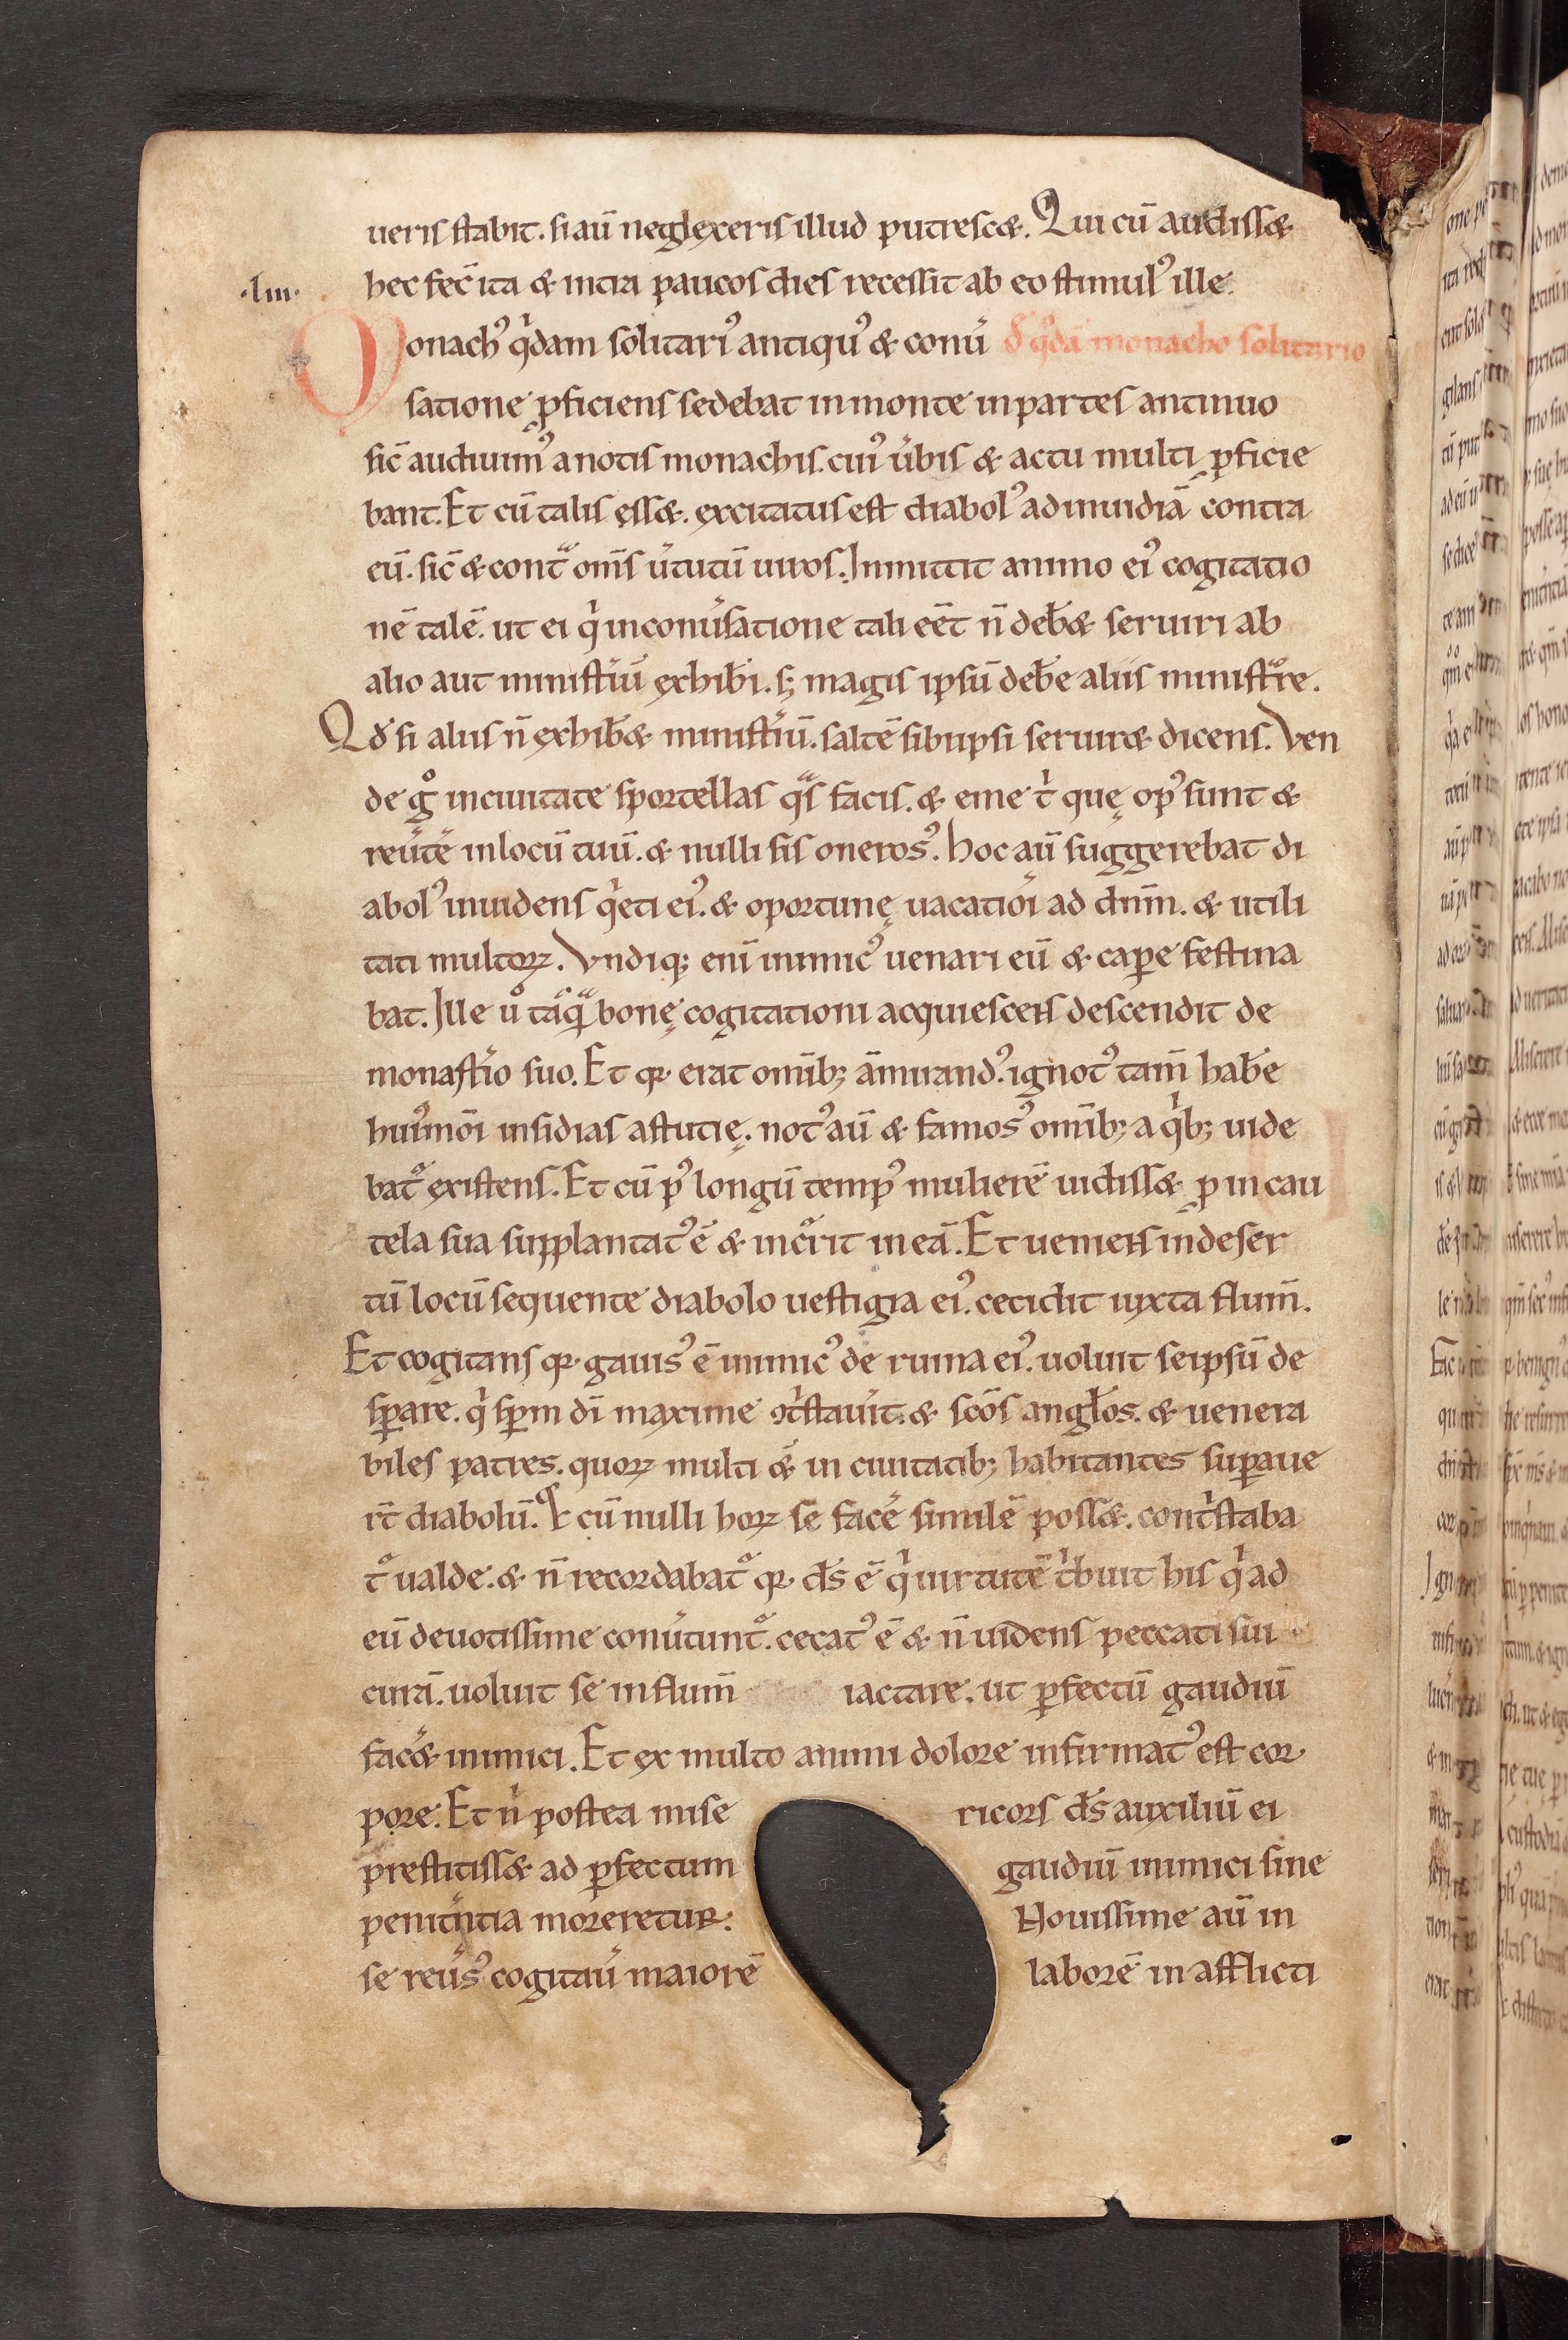 ueris stabit. si aū neglexeris illud putrescæ. Qui cū audissæ
hec fec̄ ita & intra paucos dies recessit ab eo stimulꝰ ille.
·liii·
Monachꝰ qͥdam solitariꝰ antiquꝰ & conu͛ đ qͦdā monacho solitario
satione ꝓficiens sedebat in monte in partes antinuo
sic̄ audiuimꝰ a notis monachis. cuiꝰ u͛bis & actu multi ꝓficie
bant. Et cū talis ęssæ. excitatus est diabolꝰ ad inuidiā contra
eū. sic̄ & contͣ om̄s u͛tutū uiros. Inmittit animo eiꝰ cogitatio
nē talē. ut ei qͥ in conu͛satione tali eēt n̄ deb̄æ seruiri ab
alio aut minist͛iū exhib̄i. s; magis ipsū deb̄e aliis minist͛re.
Qđ si aliis n̄ exhib̄æ minist͛iū. saltē sibi ipsi seruiræ dicens. Ven
de gͦ in ciuitate sportellas qͣs facis. & eme tͥ quę opꝰ sunt &
reu͛te͛ in locū tuū. & nulli sis onerosꝰ. Hoc aū suggerebat di
abolꝰ inuidens qͥeti eiꝰ. & oportunę uacatiōi ad dn̄m. & utili
tati multoꝝ. Vndiq; eni inimicꝰ uenari eū & cap̄e festina
bat. Ille uͦ tāqͣ bonę cogitationi acquiescens descendit de
monast͛io suo. Et qꝛ erat omīb; āmirandꝰ. ignotꝰ tam̄ hab̄e
huiꝰmōi insidias astutię. notꝰ aū & famosꝰ omīb; a qͥb; uide
bat᷑ existens. Et cū pꝰ longū tempꝰ mulierē uidissæ ꝓ incau
tela sua supplantatꝰ ē & inc᷑rit in eā. Et ueniens in deser
tū locū sequente diabolo uestigia eiꝰ. cecidit iuxta flum̄.
Et cogitans qꝛ gauisꝰ ē inimicꝰ de ruina eiꝰ. uoluit seipsū de
sꝑare. qͥ sp̄m dī maxime ↄtͥstauit. & scōs angłos. & uenera
biles patres. quoꝝ multi &͛ in ciuitatib; habitantes suꝑaue
rt̄ diabolū. Et cū nulli hoꝝ se face͛ similē possæ. contͥstaba
t᷑ ualde. & n̄ recordabat᷑ qꝛ ds̄ ē qͥ uirtutē tͥbuit his qͥ ad
eū deuotissime conu͛tunt᷑. cecatꝰ ē & n̄ uidens peccati sui
curā. uoluit se in flum̄ iactare. ut ꝑfectū gaudiū
fac͛æ inimici. Et ex multo animi dolore infirmatꝰ est cor
pore. Et nͥ postea mise ricors ds̄ auxiliū ei
prestitissæ ad ꝑfectum gaudiū inimici sine
penitn͛tia moreretur. Nouissime aū in
se reu͛sꝰ cogitau͛ maiorē laborē in afflicti